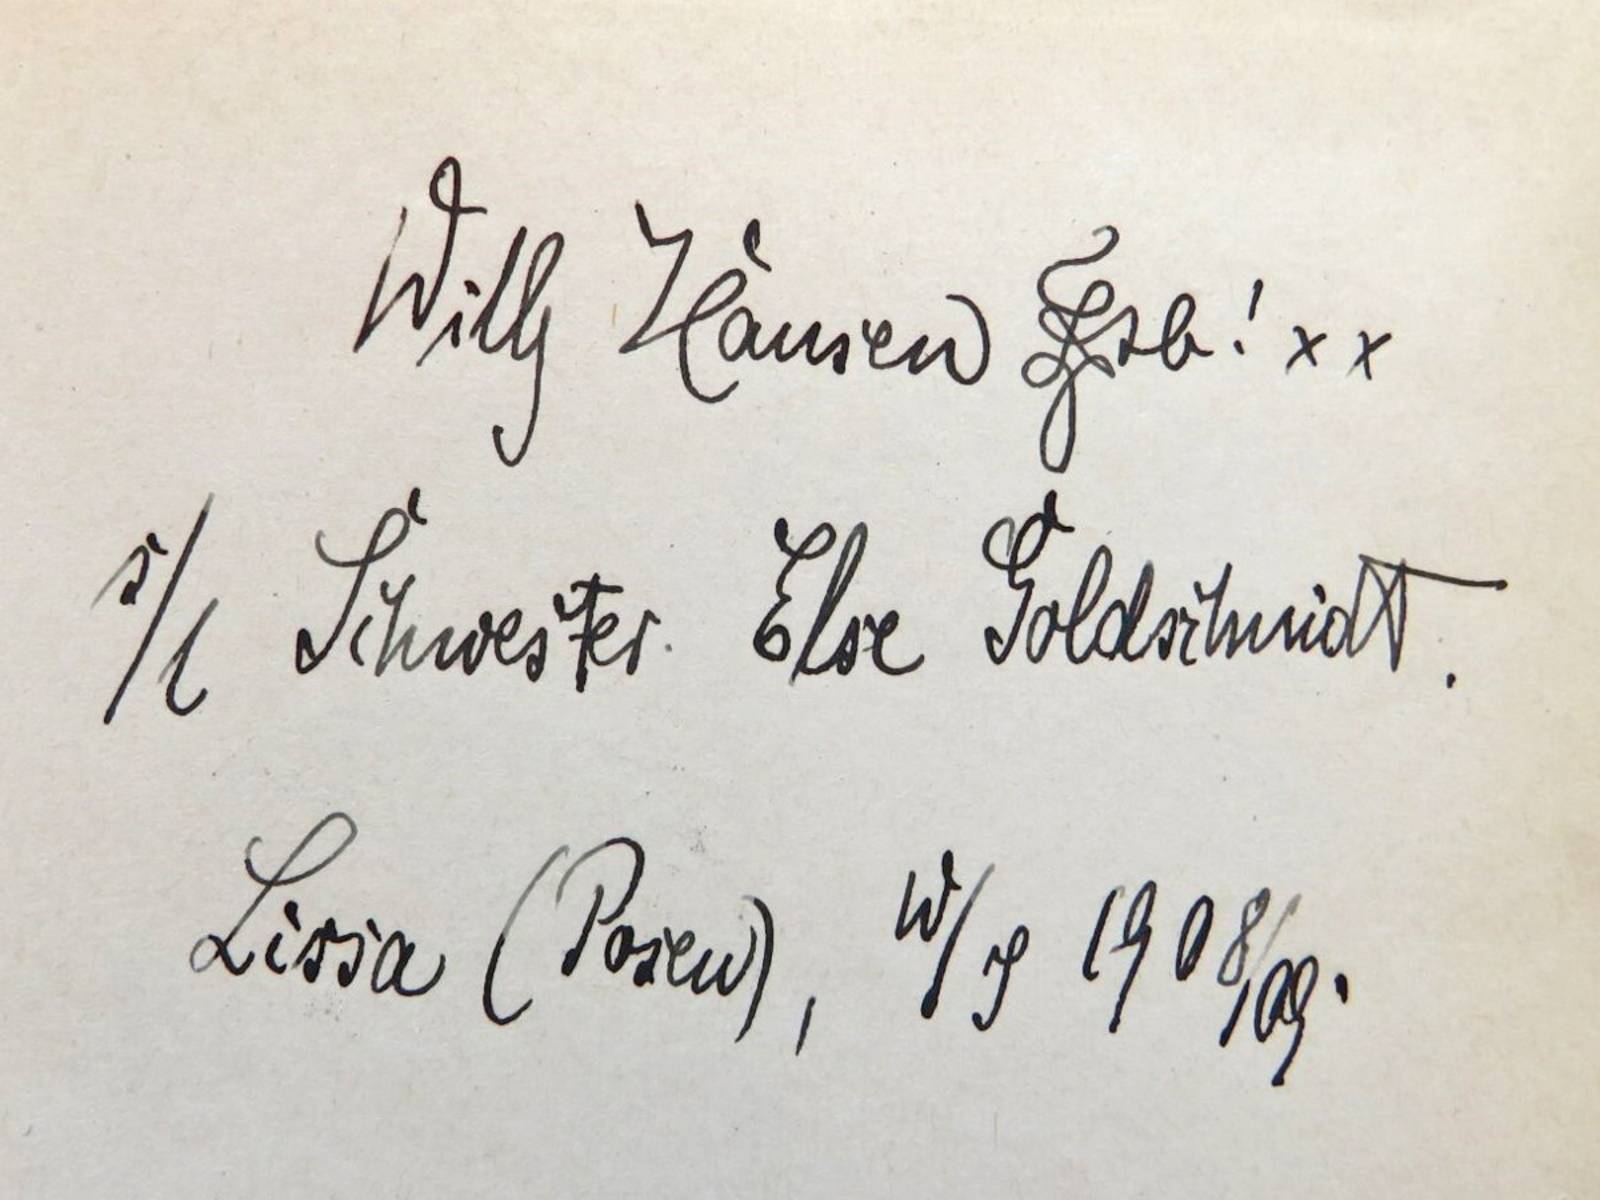 Willy Hansen ! x x
s/l Schwester Else Goldschmidt.
Lissa (Posen), W/S 1908/09.